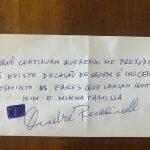 QUE CONTINUAM QUERENDO ME PREJUDI
EXISTE DELAÇÃO DE QUEM É INOCEN
DESMINTO OS FAKES QUE LANÇAM CONTRA
MIM E MINHA FAMILIA